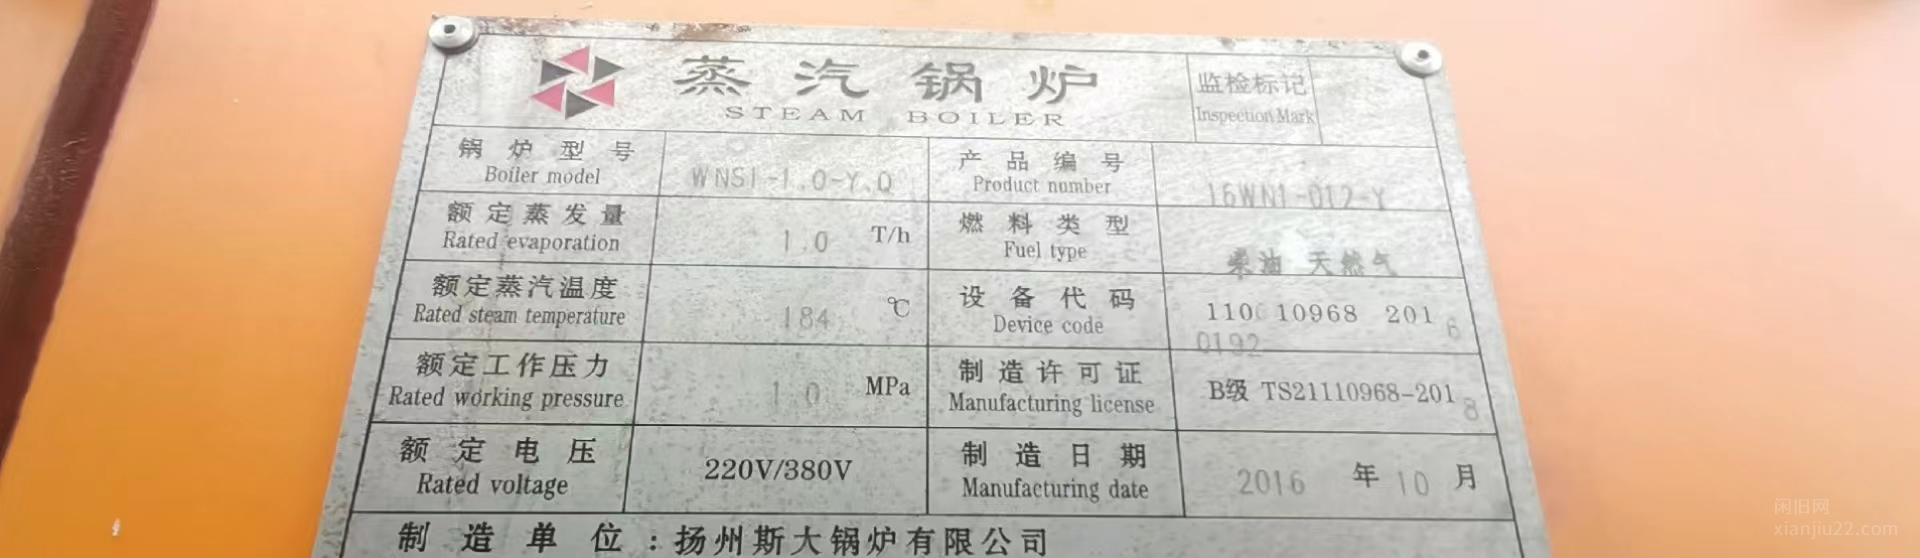 蒸汽锅炉
STEAM BOILER
监检标记
Inspection Mark
锅炉型号
Boiler model
WNS1-1.0-Y.Q
产品编号
Product number
16WN1-012-Y
额定蒸发量
Rated evaporation
1.0 T/h
燃料类型
Fuel type
柴油 天然气
额定蒸汽温度
Rated steam temperature
184 ℃
设备代码
Device code
110 10968 2016
0192
额定工作压力
Rated working pressure
1.0 MPa
制造许可证
Manufacturing license
B级 TS21110968-2018
额定电压
Rated voltage
220V/380V
制造日期
Manufacturing date
2016 年 10 月
制造单位:扬州斯大锅炉有限公司
闲旧网
xianjiu22.com